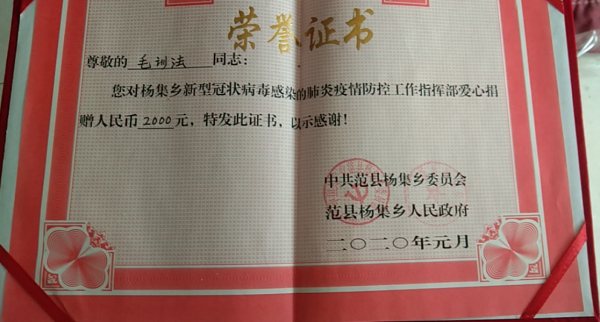 荣誉证书
尊敬的 毛训法 同志：
您对杨集乡新型冠状病毒感染的肺炎疫情防控工作指挥部爱心捐
赠人民币 2000 元，特发此证书，以示感谢！
中共范县杨集乡委员会
范县杨集乡人民政府
二〇二〇年元月